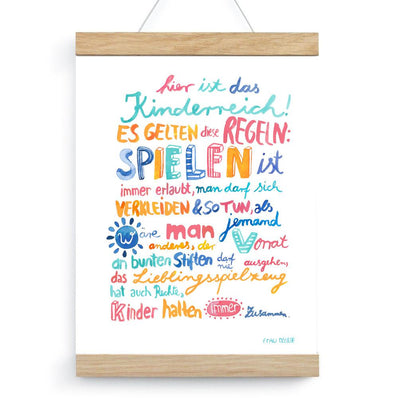 hier ist das
Kinderreich!
ES GELTEN diese REGELN:
SPIELEN ist
immer erlaubt, man darf sich
VERKLEIDEN & SO TUN, als
Wäre man jemand
anderes, der Vorrat
an bunten Stiften darf nie ausgehen,
das Lieblingsspielzeug
hat auch Rechte,
Kinder halten immer Zusammen.